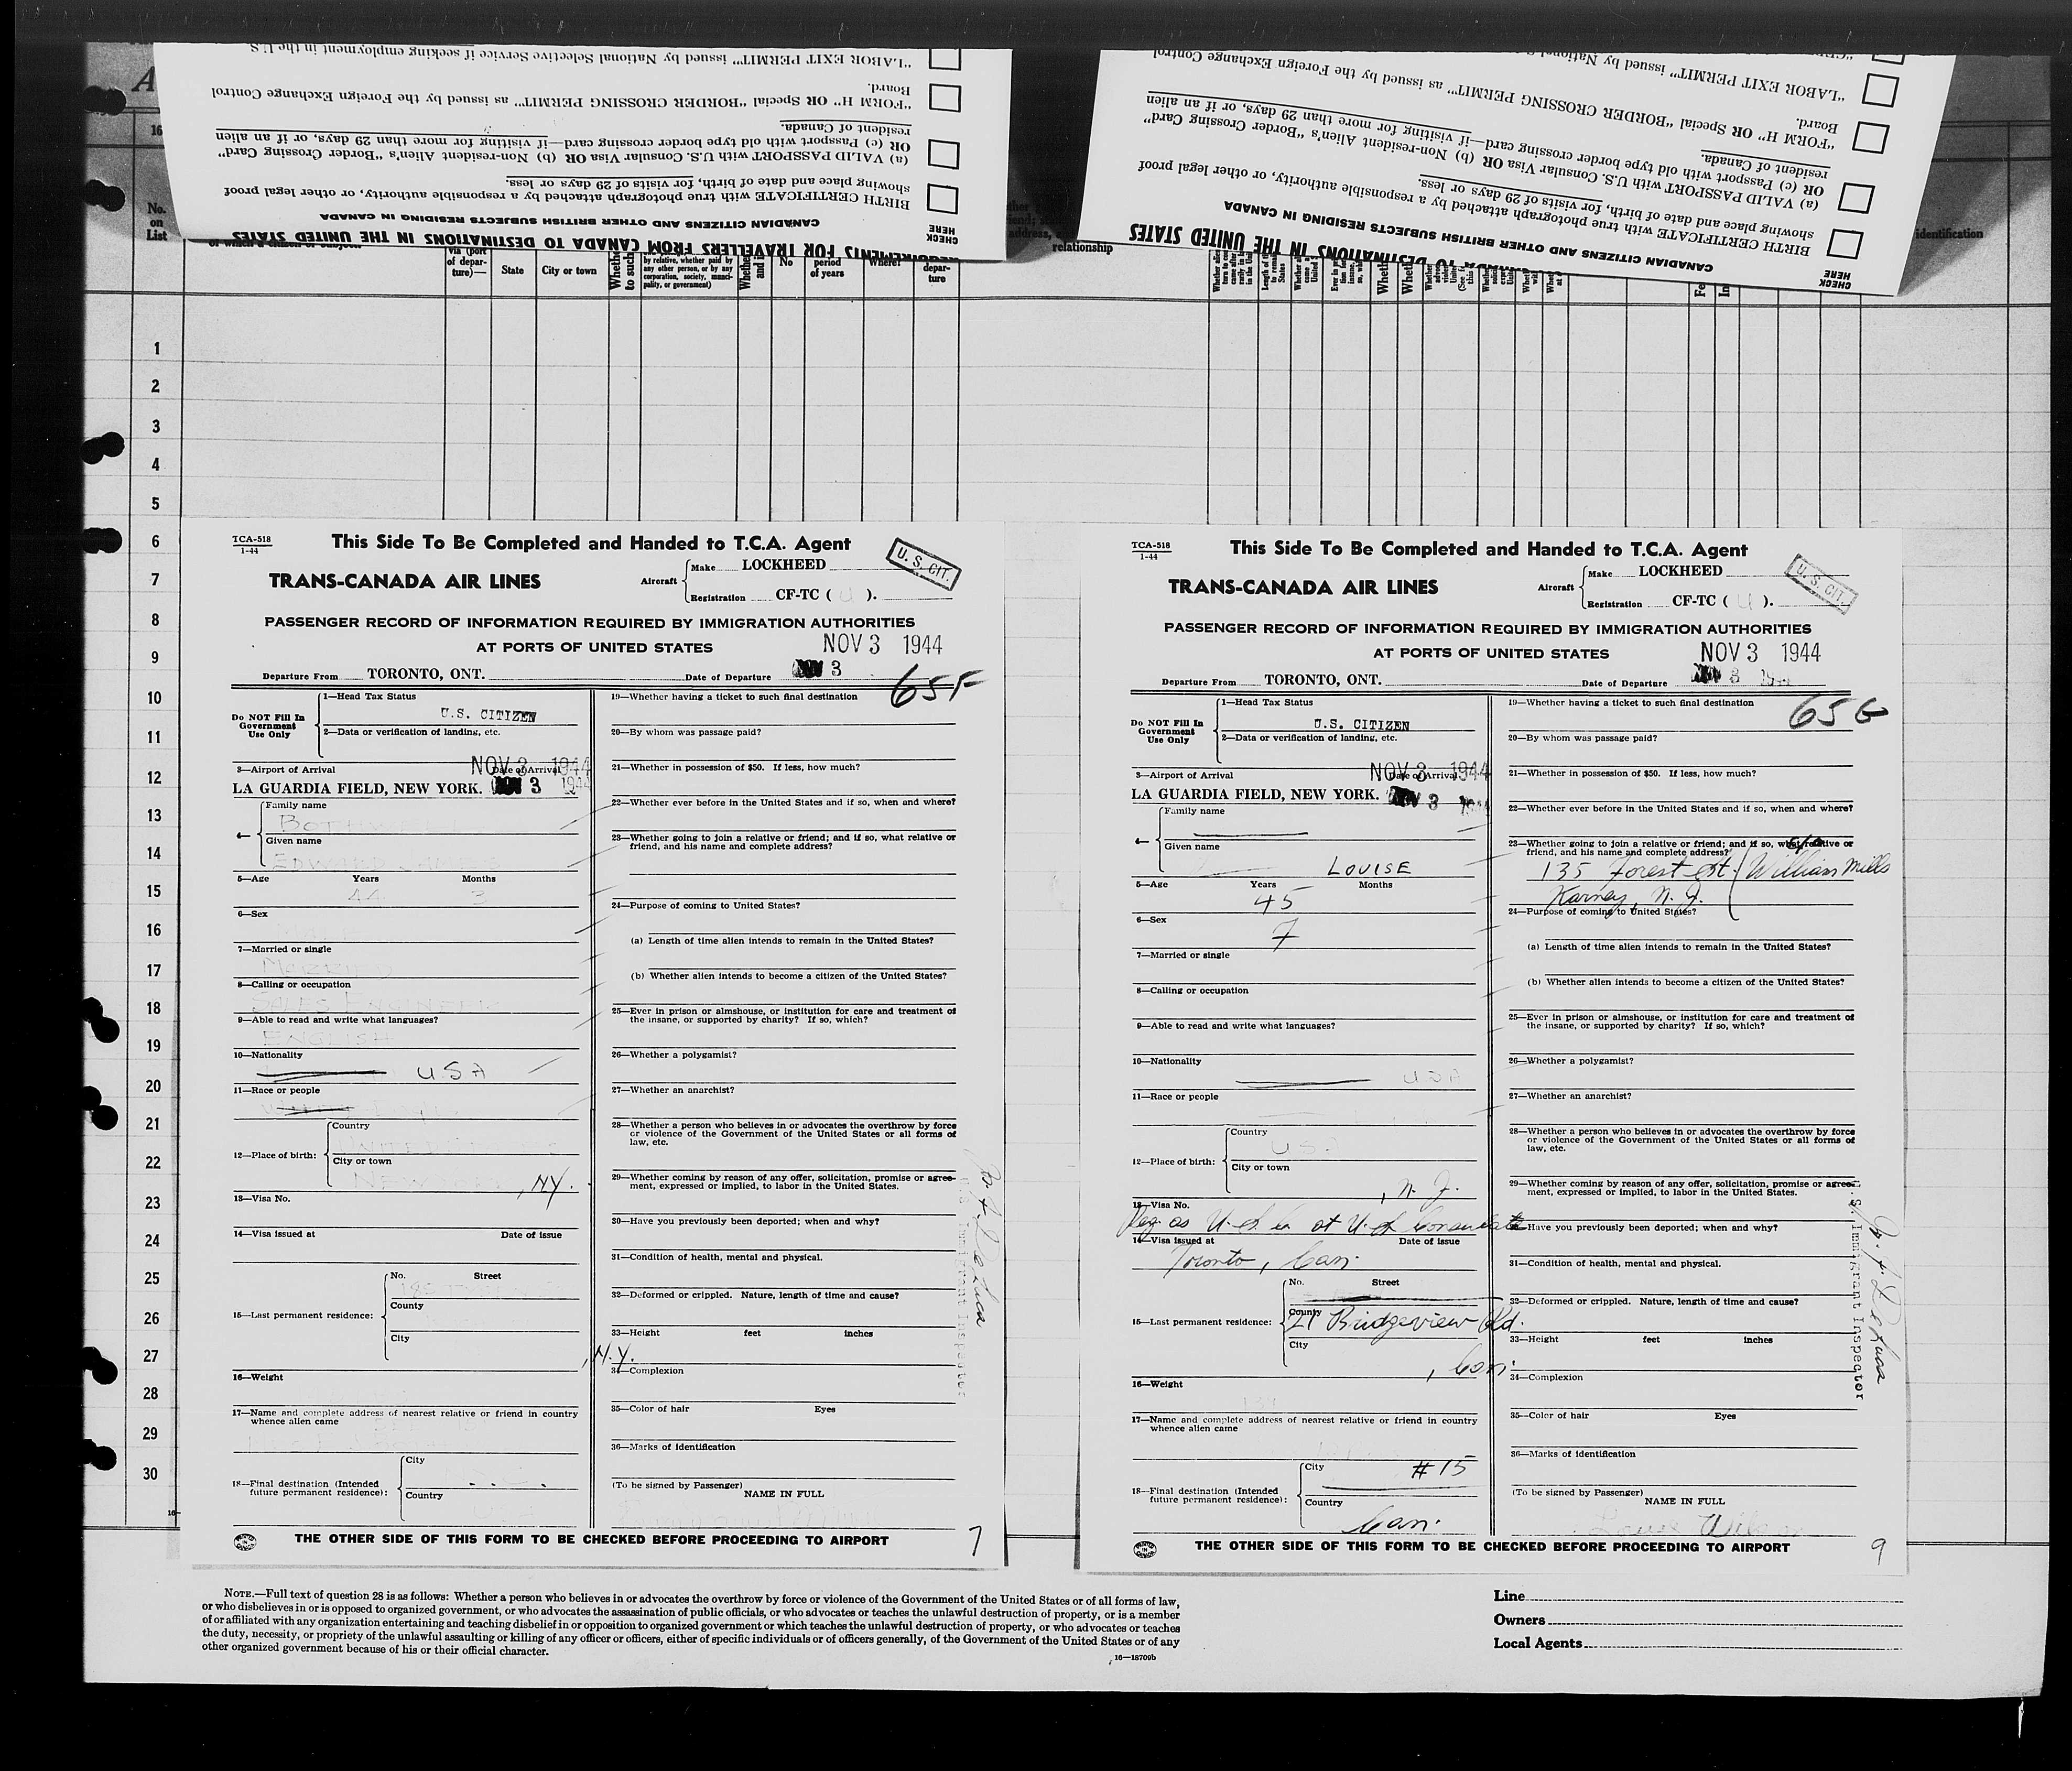 "LABOR EXIT PERMIT" issued by National Selective Service if seeking employment in the U.S.
"FORM H" OR Special "BORDER CROSSING PERMIT" as issued by the Foreign Exchange Control
Board.
(a) VALID PASSPORT with U.S. Consular Visa OR (b) Non-resident Alien's "Border Crossing Card"
OR (c) Passport with old type border crossing card—if visiting for more than 29 days, or if an alien
resident of Canada.
BIRTH CERTIFICATE with true photograph attached by a responsible authority, or other legal proof
showing place and date of birth, for visits of 29 days or less.
CANADIAN CITIZENS AND OTHER BRITISH SUBJECTS RESIDING IN CANADA
CHECK
HERE
REQUIREMENTS FOR TRAVELLERS FROM CANADA TO DESTINATIONS IN THE UNITED STATES
"LABOR EXIT PERMIT" issued by National
"FORM H" OR Special "BORDER CROSSING PERMIT" as issued by the Foreign Exchange Control
Board.
(a) VALID PASSPORT with U.S. Consular Visa OR (b) Non-resident Alien's "Border Crossing Card"
OR (c) Passport with old type border crossing card—if visiting for more than 29 days, or if an alien
resident of Canada.
BIRTH CERTIFICATE with true photograph attached by a responsible authority, or other legal proof
showing place and date of birth, for visits of 29 days or less.
CANADIAN CITIZENS AND OTHER BRITISH SUBJECTS RESIDING IN CANADA
CHECK
HERE
DESTINATIONS IN THE UNITED STATES
No.
on
List
relationship
identification
via (port
of depar-
ture)—
State
City or town
by relative, whether paid by
any other person, or by any
corporation, society, munici-
pality, or government)
No
period
of years
Where?
depar-
ture
1
2
3
4
5
6
7
8
9
10
11
12
13
14
15
16
17
18
19
20
21
22
23
24
25
26
27
28
29
30
TCA-518
1-44
This Side To Be Completed and Handed to T.C.A. Agent
U. S. CIT.
TRANS-CANADA AIR LINES
Aircraft
Make LOCKHEED
Registration CF-TC ( U ).
PASSENGER RECORD OF INFORMATION REQUIRED BY IMMIGRATION AUTHORITIES
AT PORTS OF UNITED STATES
NOV 3 1944
Departure From TORONTO, ONT. Date of Departure NOV 3
65F
Do NOT Fill In
Government
Use Only
1—Head Tax Status
U.S. CITIZEN
2—Data or verification of landing, etc.
NOV 3 1944
3—Airport of Arrival Date of Arrival
LA GUARDIA FIELD, NEW YORK. NOV 3 1944
4—
Family name
Given name
EDWARD JAMES
5—Age Years Months
44 3
6—Sex
7—Married or single
MARRIED
8—Calling or occupation
SALES ENGINEER
9—Able to read and write what languages?
ENGLISH
10—Nationality
USA
11—Race or people
12—Place of birth:
Country
City or town
NEW , NY.
13—Visa No.
14—Visa issued at Date of issue
15—Last permanent residence:
No. Street
County
City
, N.Y.
16—Weight
17—Name and complete address of nearest relative or friend in country
whence alien came
18—Final destination (Intended
future permanent residence):
City
Country
19—Whether having a ticket to such final destination
20—By whom was passage paid?
21—Whether in possession of $50. If less, how much?
22—Whether ever before in the United States and if so, when and where?
23—Whether going to join a relative or friend; and if so, what relative or
friend, and his name and complete address?
24—Purpose of coming to United States?
(a) Length of time alien intends to remain in the United States?
(b) Whether alien intends to become a citizen of the United States?
25—Ever in prison or almshouse, or institution for care and treatment of
the insane, or supported by charity? If so, which?
26—Whether a polygamist?
27—Whether an anarchist?
28—Whether a person who believes in or advocates the overthrow by force
or violence of the Government of the United States or all forms of
law, etc.
29—Whether coming by reason of any offer, solicitation, promise or agree-
ment, expressed or implied, to labor in the United States.
30—Have you previously been deported; when and why?
31—Condition of health, mental and physical.
32—Deformed or crippled. Nature, length of time and cause?
33—Height feet inches
34—Complexion
35—Color of hair Eyes
36—Marks of identification
(To be signed by Passenger)
NAME IN FULL
U.S. Immigrant Inspector
THE OTHER SIDE OF THIS FORM TO BE CHECKED BEFORE PROCEEDING TO AIRPORT
7
TCA-518
1-44
This Side To Be Completed and Handed to T.C.A. Agent
U. S. CIT.
TRANS-CANADA AIR LINES
Aircraft
Make LOCKHEED
Registration CF-TC ( U ).
PASSENGER RECORD OF INFORMATION REQUIRED BY IMMIGRATION AUTHORITIES
AT PORTS OF UNITED STATES
NOV 3 1944
Departure From TORONTO, ONT. Date of Departure NOV 3
65G
Do NOT Fill In
Government
Use Only
1—Head Tax Status
U.S. CITIZEN
2—Data or verification of landing, etc.
NOV 3 1944
3—Airport of Arrival Date of Arrival
LA GUARDIA FIELD, NEW YORK. NOV 3 1944
4—
Family name
Given name
LOUISE
5—Age Years Months
45
6—Sex
F
7—Married or single
8—Calling or occupation
9—Able to read and write what languages?
10—Nationality
USA
11—Race or people
12—Place of birth:
Country
USA
City or town
, N. J.
13—Visa No.
Reg. as U.S.C. at U.S. Consulate
14—Visa issued at Date of issue
Toronto, Can.
15—Last permanent residence:
No. Street
County
21 Bridgeview Rd.
City
, Can.
16—Weight
17—Name and complete address of nearest relative or friend in country
whence alien came
18—Final destination (Intended
future permanent residence):
City
#15
Country
Can.
19—Whether having a ticket to such final destination
20—By whom was passage paid?
21—Whether in possession of $50. If less, how much?
22—Whether ever before in the United States and if so, when and where?
23—Whether going to join a relative or friend; and if so, what relative or
friend, and his name and complete address?
135 Forest St. William Mills
Karney, N. J.
24—Purpose of coming to United States?
(a) Length of time alien intends to remain in the United States?
(b) Whether alien intends to become a citizen of the United States?
25—Ever in prison or almshouse, or institution for care and treatment of
the insane, or supported by charity? If so, which?
26—Whether a polygamist?
27—Whether an anarchist?
28—Whether a person who believes in or advocates the overthrow by force
or violence of the Government of the United States or all forms of
law, etc.
29—Whether coming by reason of any offer, solicitation, promise or agree-
ment, expressed or implied, to labor in the United States.
30—Have you previously been deported; when and why?
31—Condition of health, mental and physical.
32—Deformed or crippled. Nature, length of time and cause?
33—Height feet inches
34—Complexion
35—Color of hair Eyes
36—Marks of identification
(To be signed by Passenger)
NAME IN FULL
Louise Wilson
U.S. Immigrant Inspector
THE OTHER SIDE OF THIS FORM TO BE CHECKED BEFORE PROCEEDING TO AIRPORT
9
NOTE.—Full text of question 28 is as follows: Whether a person who believes in or advocates the overthrow by force or violence of the Government of the United States or of all forms of law,
or who disbelieves in or is opposed to organized government, or who advocates the assassination of public officials, or who advocates or teaches the unlawful destruction of property, or is a member
of or affiliated with any organization entertaining and teaching disbelief in or opposition to organized government or which teaches the unlawful destruction of property, or who advocates or teaches
the duty, necessity, or propriety of the unlawful assaulting or killing of any officer or officers, either of specific individuals or of officers generally, of the Government of the United States or of any
other organized government because of his or their official character.
16—18709b
Line
Owners
Local Agents